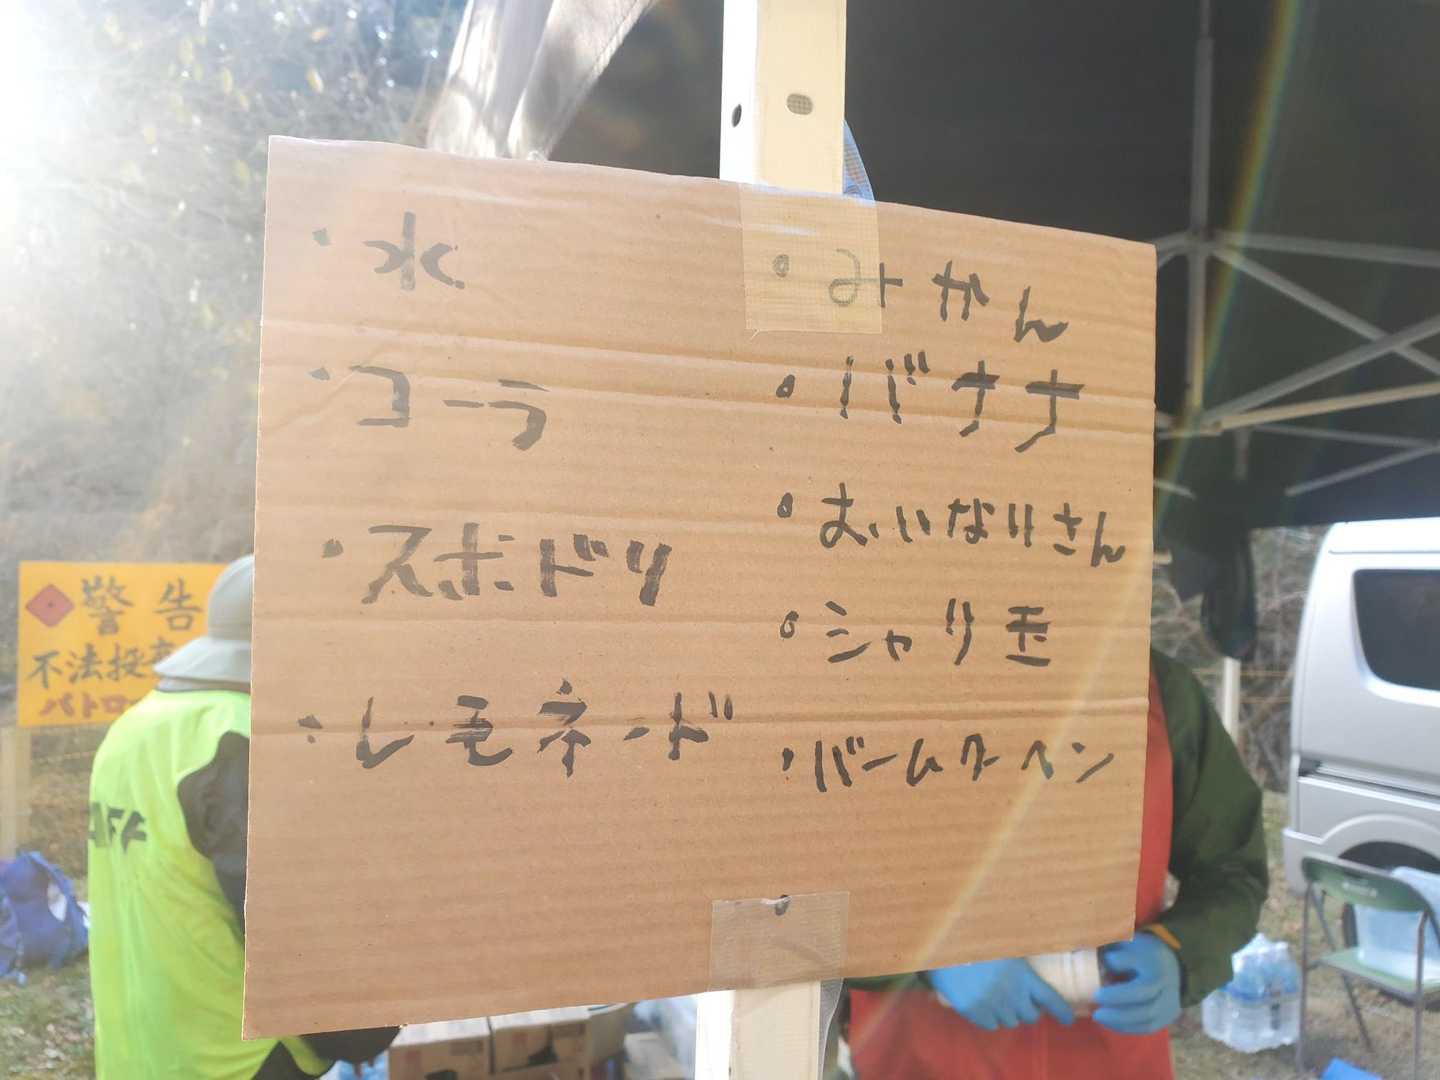 ・水
・コーラ
・スポドリ
・レモネード
・みかん
・バナナ
・おいなりさん
・シャリ玉
・バームクーヘン
警告
不法投棄
パトロー
STAFF